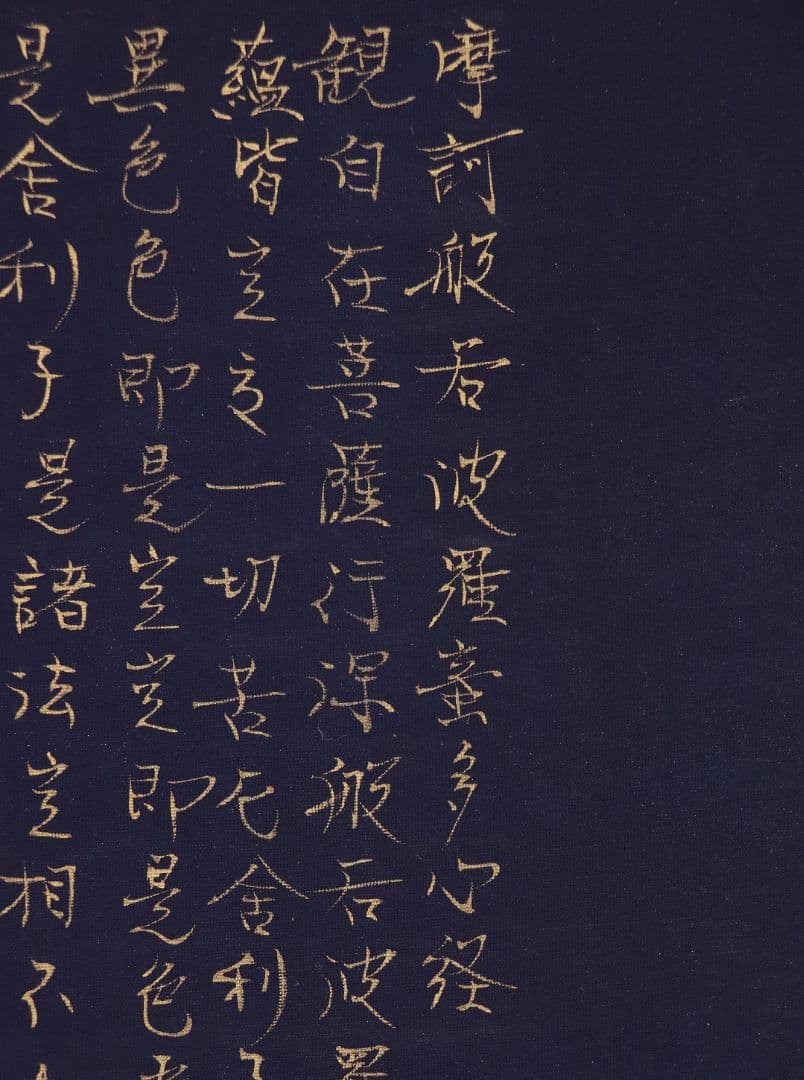 摩訶般若波羅蜜多心経
観自在菩薩行深般若波羅
蘊皆空度一切苦厄舎利子
異色色即是空空即是色
是舎利子是諸法空相不